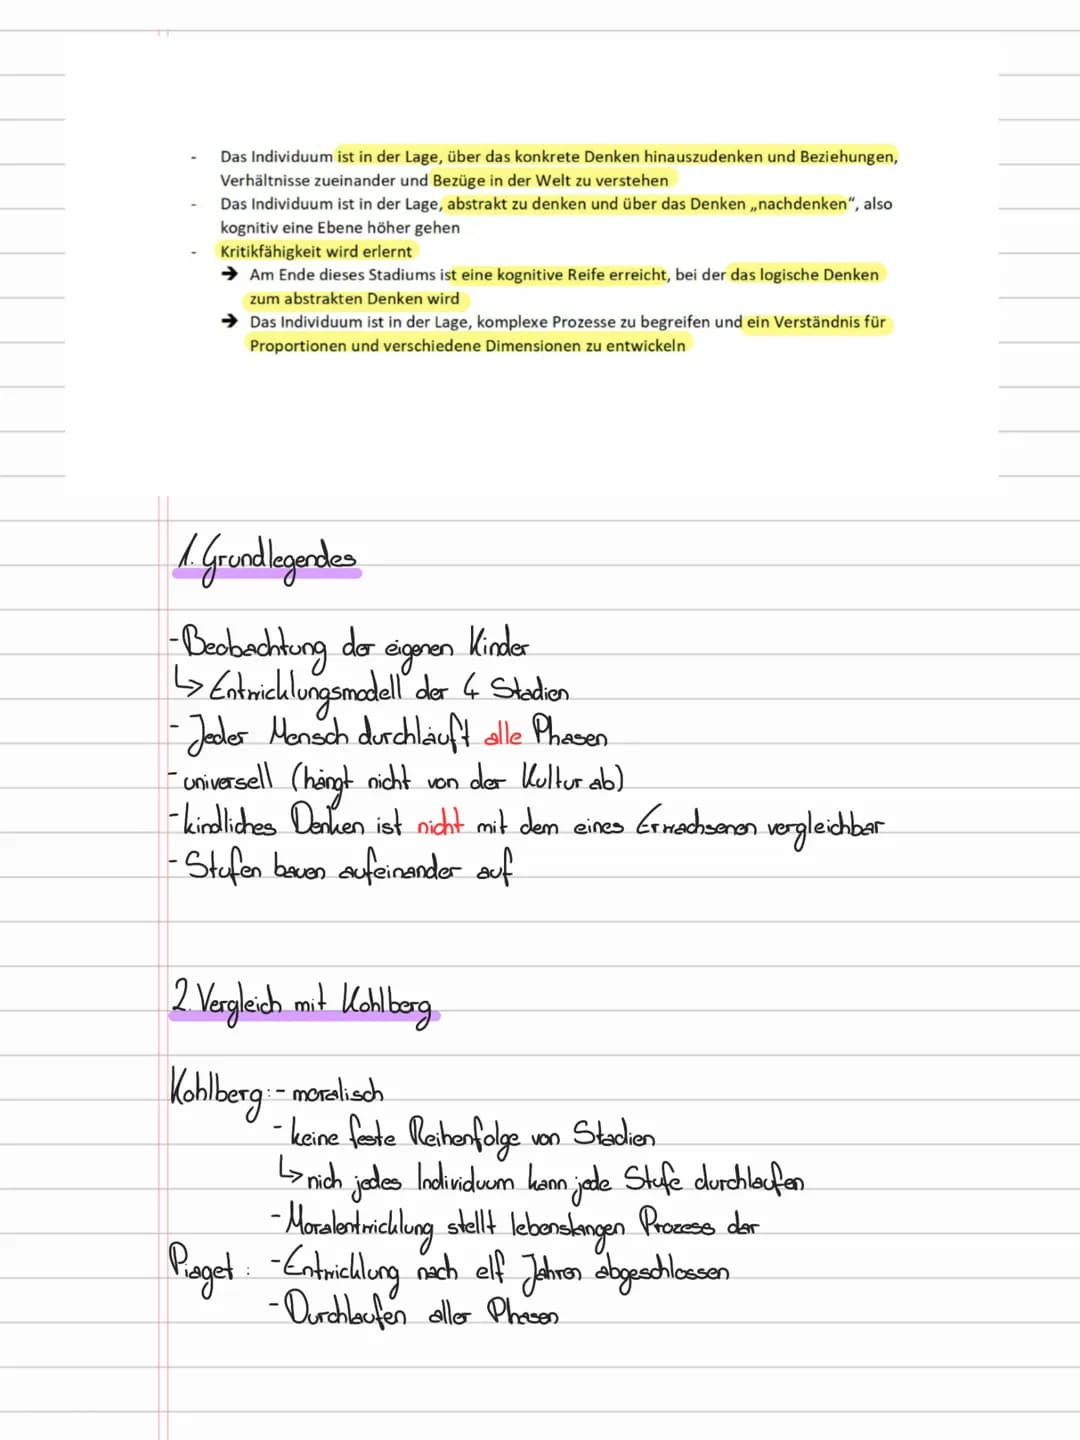 - Das Individuum ist in der Lage, über das konkrete Denken hinauszudenken und Beziehungen,
Verhältnisse zueinander und Bezüge in der Welt zu verstehen
- Das Individuum ist in der Lage, abstrakt zu denken und über das Denken „nachdenken“, also
kognitiv eine Ebene höher gehen
- Kritikfähigkeit wird erlernt
→ Am Ende dieses Stadiums ist eine kognitive Reife erreicht, bei der das logische Denken
zum abstrakten Denken wird
→ Das Individuum ist in der Lage, komplexe Prozesse zu begreifen und ein Verständnis für
Proportionen und verschiedene Dimensionen zu entwickeln
1. Grundlegendes
- Beobachtung der eigenen Kinder
↳ Entwicklungsmodell der 4 Stadien
- Jeder Mensch durchläuft alle Phasen
- universell (hängt nicht von der Kultur ab)
- kindliches Denken ist nicht mit dem eines Erwachsenen vergleichbar
- Stufen bauen aufeinander auf
2. Vergleich mit Kohlberg
Kohlberg: - moralisch
- keine feste Reihenfolge von Stadien
↳ nich jedes Individuum kann jede Stufe durchlaufen
- Moralentwicklung stellt lebenslangen Prozess dar
Piaget: - Entwicklung nach elf Jahren abgeschlossen
- Durchlaufen aller Phasen